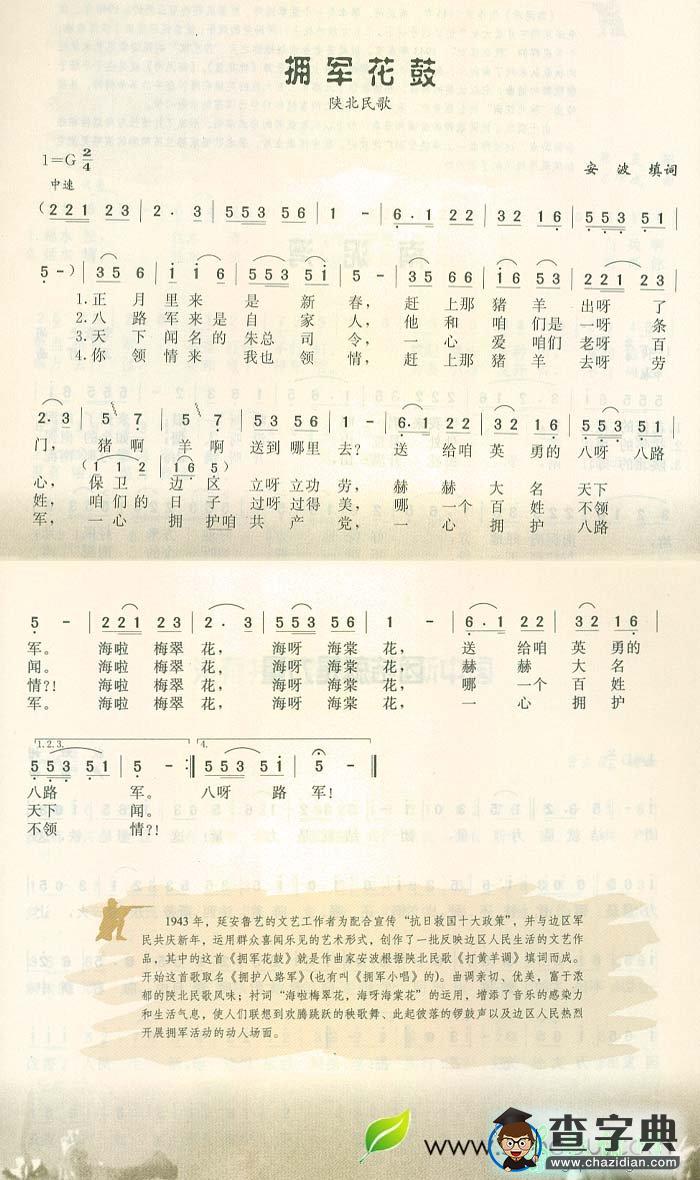 拥军花鼓
陕北民歌
1=G 2/4
中速
安 波 填词
( 2 2 1 2 3 | 2 · 3 | 5 5 3 5 6 | 1 - | 6 · 1 2 2 | 3 2 1 6 | 5 5 3 5 1 |
5 - ) | 3 5 6 | i i 6 | 5 5 3 5 i | 5 - | 3 5 6 6 | i 6 5 3 | 2 2 1 2 3 |
1.正 月 里 来 是 新 春， 赶 上那 猪 羊 出呀 了
2.八 路 军 来是 自 家 人， 他 和 咱 们是 一呀 条
3.天 下 闻名 的 朱总 司 令， 一 心 爱 咱们 老呀 百
4.你 领 情 来 我也 领 情， 赶 上那 猪 羊 去呀 劳
2 · 3 | 5 7 | 6 5 7 | 5 3 5 6 | 1 - | 6 · 1 2 2 | 3 2 1 6 | 5 5 3 5 1 |
门， 猪 啊 羊 啊 送到 哪里 去？ 送 给咱 英 勇的 八呀 八路
( 1 1 2 1 6 5 )
心， 保 卫 边 区 立呀 立功 劳， 赫 赫 大 名 天下
姓， 咱 们 的 日 子 过呀 过得 美， 哪 一个 百 姓 不领
军， 一 心 拥 护咱 共 产 党， 一 心 拥 护 八路
5 - | 2 2 1 2 3 | 2 · 3 | 5 5 3 5 6 | 1 - | 6 · 1 2 2 | 3 2 1 6 |
军。 海啦 梅翠 花， 海呀 海棠 花， 送 给咱 英 勇的
闻。 海啦 梅翠 花， 海呀 海棠 花， 赫 赫 大 名
情?! 海啦 梅翠 花， 海呀 海棠 花， 哪 一个 百 姓
军。 海啦 梅翠 花， 海呀 海棠 花， 一 心 拥 护
1. 2. 3. 4.
5 5 3 5 1 | 5 - :‖ 5 5 3 5 i | 5 - ‖
八路 军。 八呀 路 军！
天下 闻。
不领 情?!
1943 年，延安鲁艺的文艺工作者为配合宣传“抗日救国十大政策”，并与边区军
民共庆新年，运用群众喜闻乐见的艺术形式，创作了一批反映边区人民生活的文艺作
品，其中的这首《拥军花鼓》就是作曲家安波根据陕北民歌《打黄羊调》填词而成。
开始这首歌取名《拥护八路军》(也有叫《拥军小唱》的)。曲调亲切、优美，富于浓
郁的陕北民歌风味；衬词“海啦梅翠花，海呀海棠花”的运用，增添了音乐的感染力
和生活气息，使人们联想到欢腾跳跃的秧歌舞、此起彼落的锣鼓声以及边区人民热烈
开展拥军活动的动人场面。
www.
查字典
www.chazidian.com